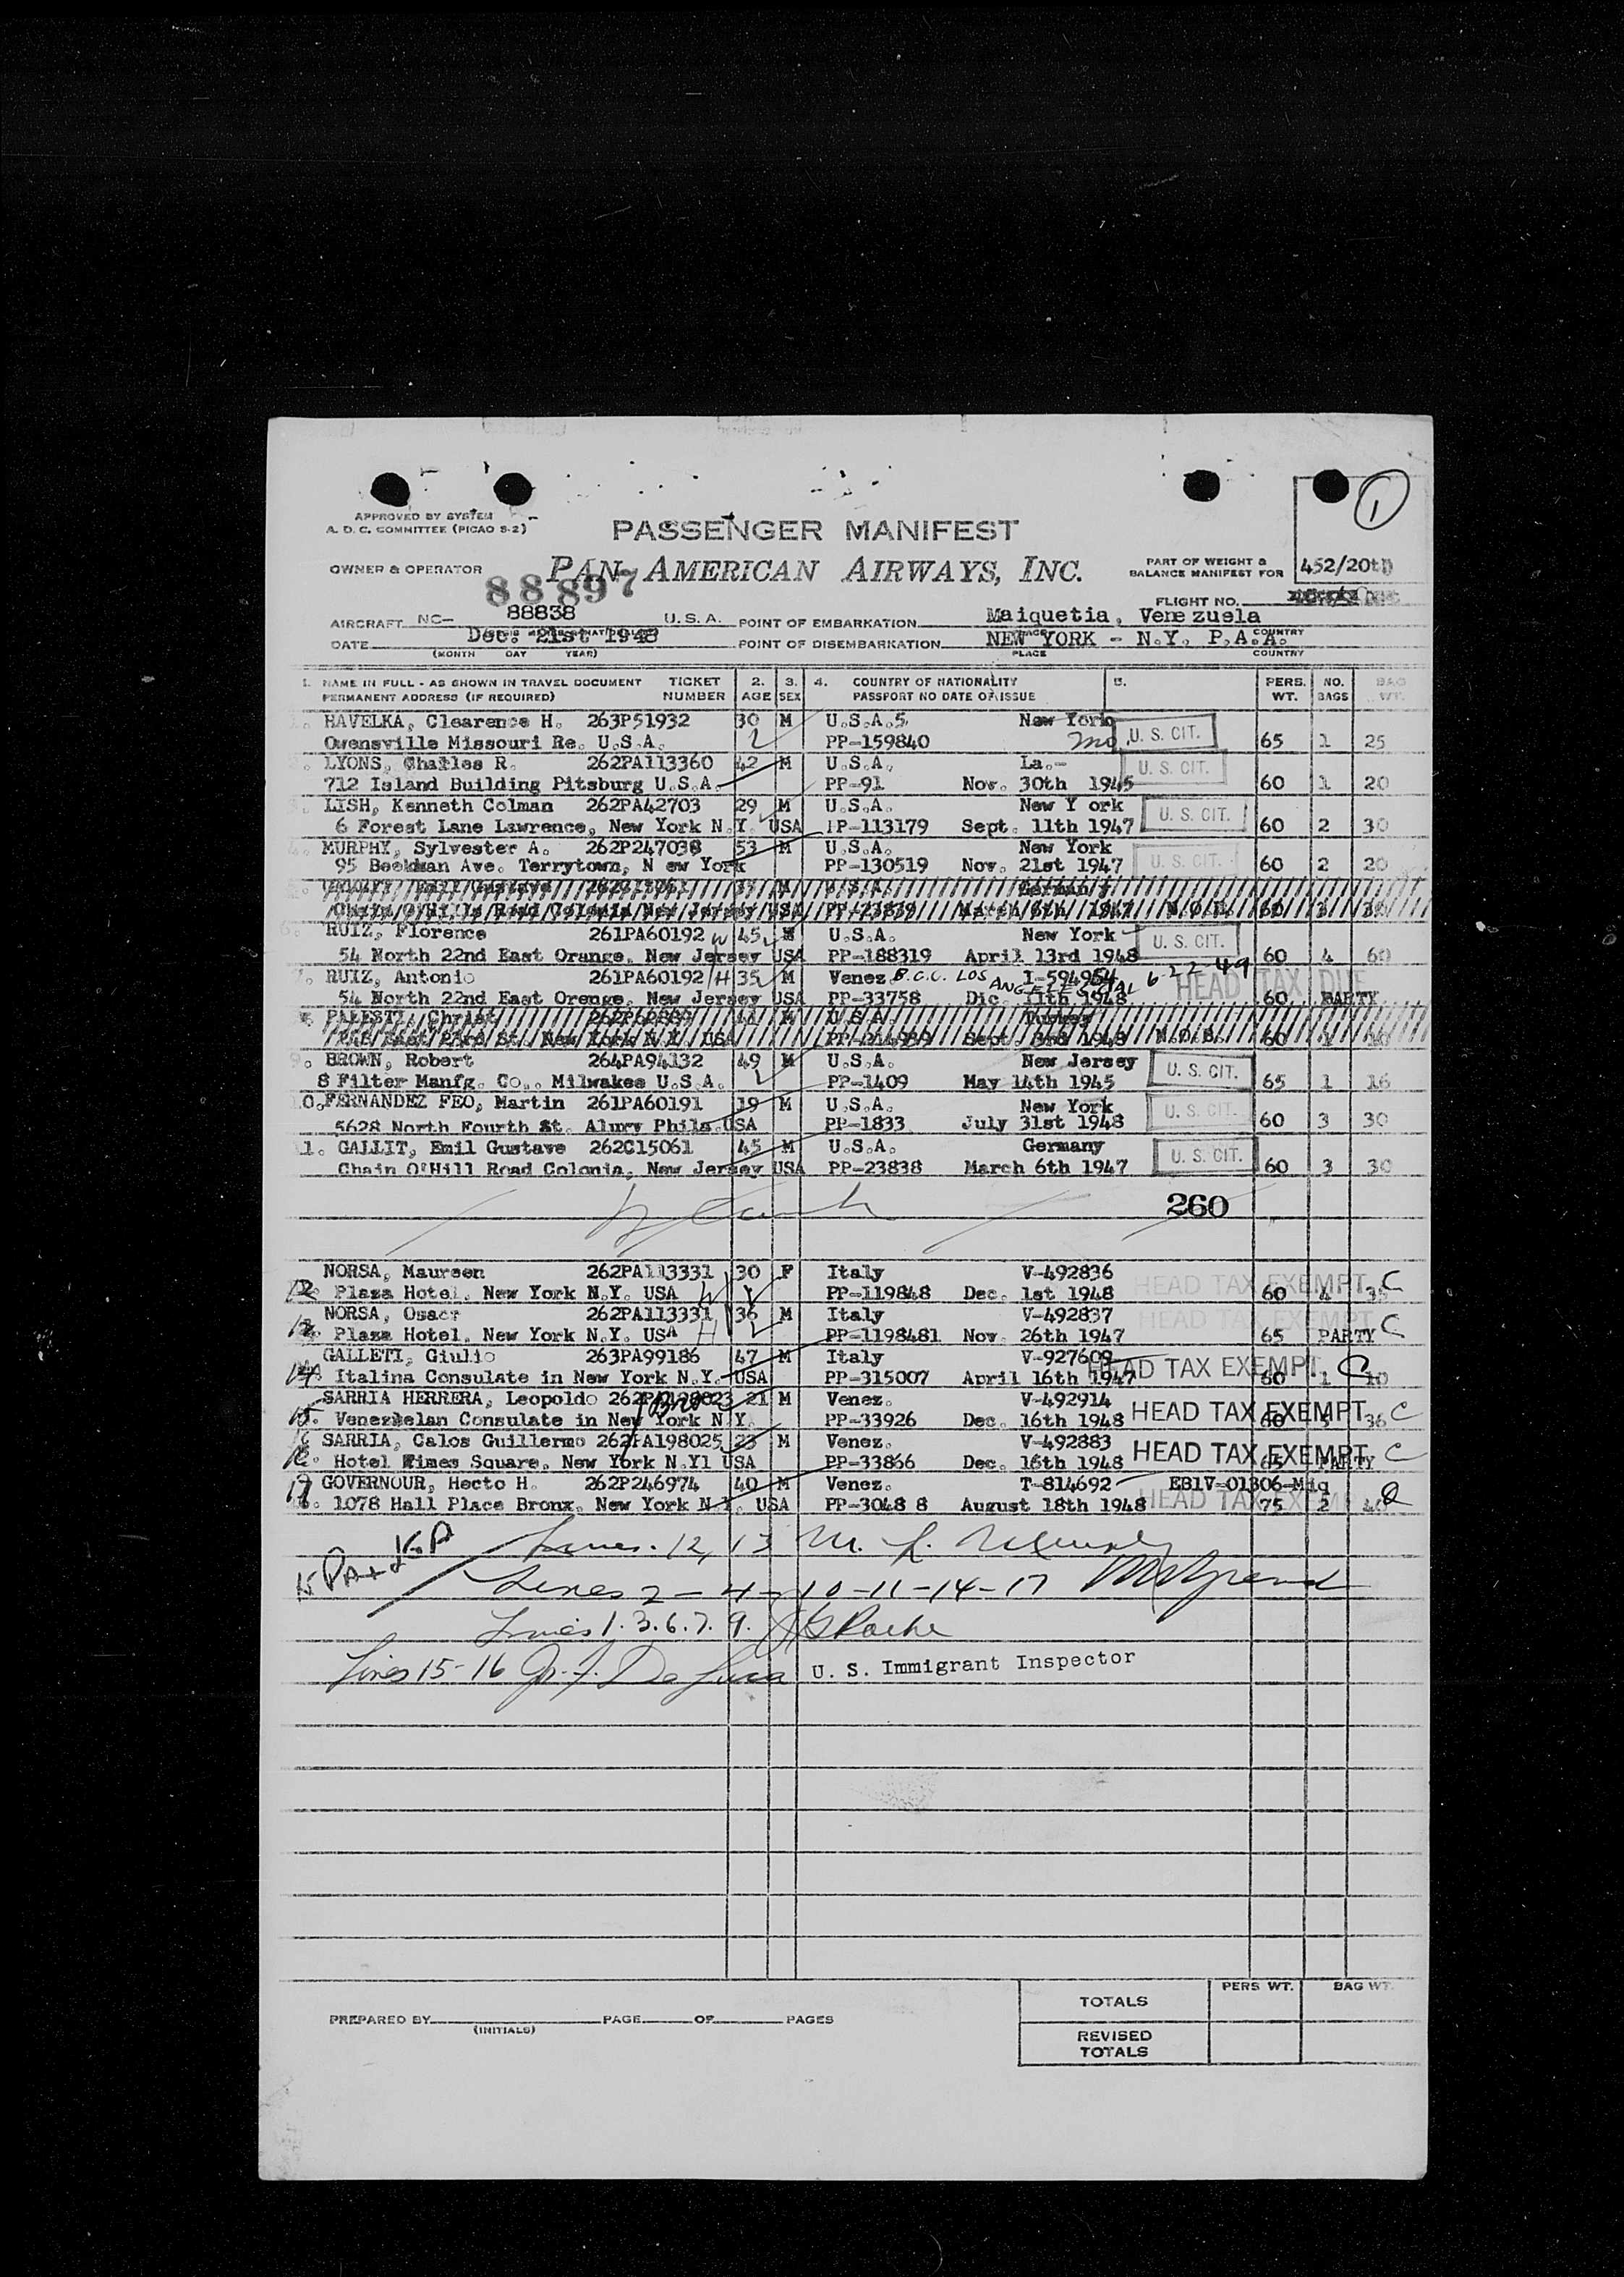 1
APPROVED BY SYSTEM
A. D. C. COMMITTEE (PICAO S-2)
PASSENGER MANIFEST
OWNER & OPERATOR
PAN AMERICAN AIRWAYS, INC.
PART OF WEIGHT &
BALANCE MANIFEST FOR
452/20th
88897
FLIGHT NO.
AIRCRAFT NC- 88838 U.S.A. POINT OF EMBARKATION Maiquetia, Venezuela
DATE Dec. 21st 1948 POINT OF DISEMBARKATION NEW YORK - N.Y. P.A.A. COUNTRY
(MONTH DAY YEAR) PLACE COUNTRY
1. NAME IN FULL - AS SHOWN IN TRAVEL DOCUMENT TICKET 2. 3. 4. COUNTRY OF NATIONALITY 5. PERS. NO. BAG
PERMANENT ADDRESS (IF REQUIRED) NUMBER AGE SEX PASSPORT NO DATE OF ISSUE WT. BAGS WT.
1. HAVELKA, Clearence H. 263P51932 30 M U.S.A. New York U. S. CIT.
Owensville Missouri Re. U.S.A. PP-159840 Mo. 65 1 25
LYONS, Challes R. 262PA113360 42 M U.S.A. La.- U. S. CIT.
712 Island Building Pitsburg U.S.A. PP-91 Nov. 30th 1945 60 1 20
LISH, Kenneth Colman 262PA42703 29 M U.S.A. New Y ork U. S. CIT.
6 Forest Lane Lawrence, New York N.Y. USA PP-113179 Sept. 11th 1947 60 2 30
4. MURPHY, Sylvester A. 262P247038 53 M U.S.A. New York U. S. CIT.
95 Beekman Ave. Terrytown, N ew York PP-130519 Nov. 21st 1947 60 2 20
Emil Gustave 262C15061 M U.S.A. Germany
Chain O'Hills Road Colonia New Jersey USA PP-23839 March 6th 1947 N.O.B. 60 3 30
6. RUIZ, Florence 261PA60192 W 45 U.S.A. New York U. S. CIT.
54 North 22nd East Orange, New Jersey USA PP-188319 April 13rd 1948 60 4 60
7. RUIZ, Antonio 261PA60192 H 35 M Venez. B.C.C. LOS ANGELES CAL 6-22-49 I-594954 HEAD TAX DUE
54 North 22nd East Orenge, New Jersey USA PP-33758 Dic. 11th 1948 60 PARTY
PALESTI, Christ 262P62889 41 M U.S.A. Turkey
East 23rd St. New York N.Y. USA PP-214989 Sept. 3rd 1948 N.O.B. 60 1
9. BROWN, Robert 264PA94132 49 M U.S.A. New Jersey U. S. CIT.
8 Filter Manfg. Co.. Milwakee U.S.A. PP-1409 May 14th 1945 65 1 16
10. FERNANDEZ FEO, Martin 261PA60191 19 M U.S.A. New York U. S. CIT.
5628 North Fourth St. Alney Phila.USA PP-1833 July 31st 1948 60 3 30
11. GALLIT, Emil Gustave 262C15061 45 M U.S.A. Germany U. S. CIT.
Chain O'Hill Road Colonia, New Jersey USA PP-23838 March 6th 1947 60 3 30
260
NORSA, Maureen 262PA113331 30 F Italy V-492836 HEAD TAX EXEMPT C
12 Plaza Hotel, New York N.Y. USA W PP-119848 Dec. 1st 1948 60 4 35
NORSA, Oscar 262PA113331 36 M Italy V-492837 HEAD TAX EXEMPT C
13 Plaza Hotel, New York N.Y. USA H PP-1198481 Nov. 26th 1947 65 PARTY
GALLETI, Giulio 263PA99186 47 M Italy V-927609 HEAD TAX EXEMPT C
14 Italina Consulate in New York N.Y. USA PP-315007 April 16th 1947 60 1 10
SARRIA HERRERA, Leopoldo 262PA198023 21 M Venez. V-492914 HEAD TAX EXEMPT C
Bros
15. Venezuelan Consulate in New York N.Y. PP-33926 Dec. 16th 1948 60 5 36
16 SARRIA, Calos Guillermo 262PA198025 23 M Venez. V-492883 HEAD TAX EXEMPT C
Hotel Times Square, New York N.Yl USA PP-33866 Dec. 16th 1948 65 PARTY
17 GOVERNOUR, Hecto H. 262P246974 40 M Venez. T-814692 EB1V-01306-Miq
1078 Hall Place Bronx, New York N.Y. USA PP-3048 8 August 18th 1948 HEAD TAX EXEMPT 75 2 40
Lines. 12, 13
Lines 2 - 4 - 10 - 11 - 14 - 17
Lines 1. 3. 6. 7. 9. Roche
Lines 15-16 De Luca U. S. Immigrant Inspector
PERS WT. BAG WT.
TOTALS
PREPARED BY PAGE OF PAGES
(INITIALS)
REVISED
TOTALS